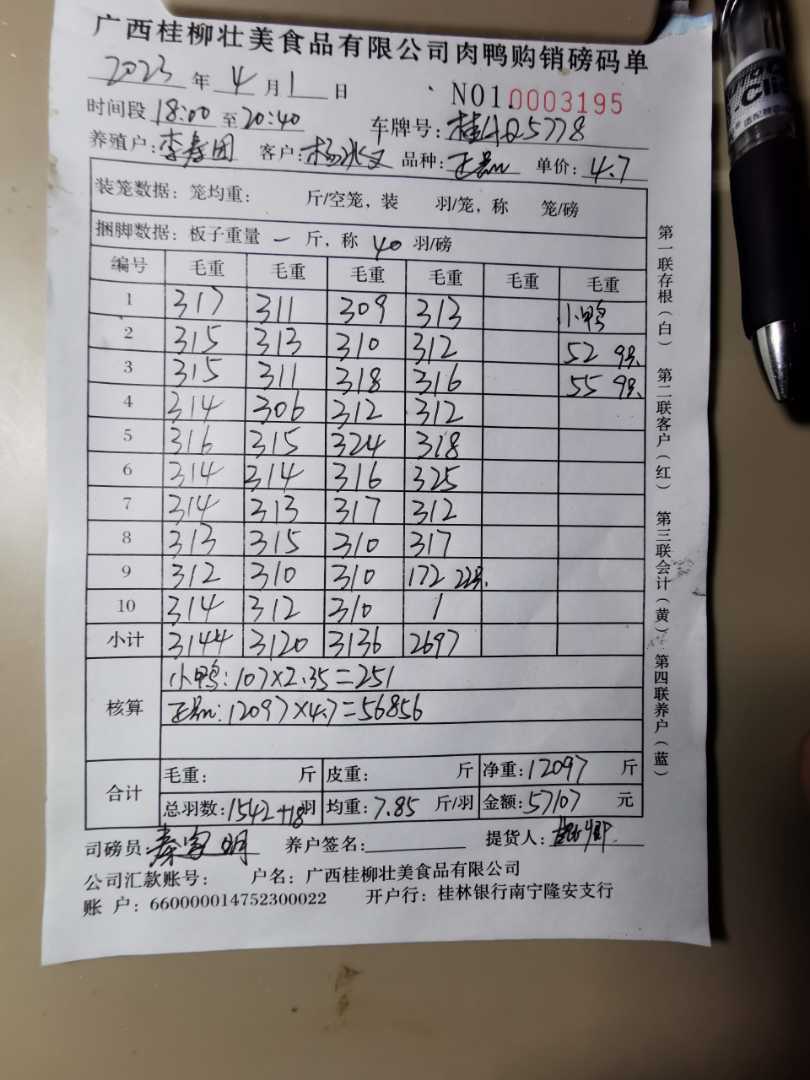 广西桂柳壮美食品有限公司肉鸭购销磅码单
2023 年 4 月 1 日 NO1.0003195
时间段 18:00 至 20:40 车牌号: 桂AQ5778
养殖户: 李寿团 客户: 杨冰文 品种: 单价: 4.7
装笼数据: 笼均重: 斤/空笼, 装 羽/笼, 称 笼/磅
捆脚数据: 板子重量 一 斤, 称 40 羽/磅
编号 毛重 毛重 毛重 毛重 毛重 毛重
1 317 311 309 313 小鸭
2 315 313 310 312 52 9只
3 315 311 318 316 55 9只
4 314 306 312 312
5 316 315 324 318
6 314 314 316 325
7 314 313 317 312
8 313 315 310 317
9 312 310 310 172 22只
10 314 312 310 /
小计 3144 3120 3136 2697
核算 小鸭: 107×2.35=251
12097×4.7=56856
合计 毛重: 斤 皮重: 斤 净重: 12097 斤
总羽数: 1542+18 羽 均重: 7.85 斤/羽 金额: 57107 元
司磅员: 秦富明 养户签名: 提货人:
公司汇款账号: 户名: 广西桂柳壮美食品有限公司
账 户: 660000014752300022 开户行: 桂林银行南宁隆安支行
第一联存根(白) 第二联客户(红) 第三联会计(黄) 第四联养户(蓝)